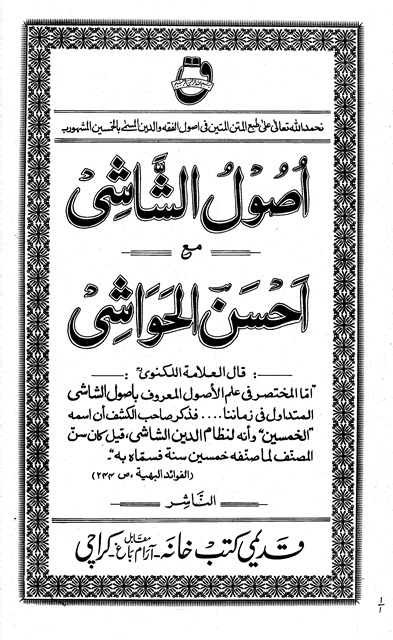 نحمد الله تعالى على طبع المتن المتين فى اصول الفقه والدين المسمى بالخمسين المشهور ب
اُصُوْلُ الشَّاشِىْ
مع
اَحْسَنَ الحَوَاشِىْ
:ـــــ قال العلامة اللكنوىؒ ـــــ:
"امّا المختصر فى علم الأصول المعروف باصول الشاشى
المتداول فى زماننا.... فذكر صاحب الكشف أن اسمه
"الخمسين" وأنه لنظام الدين الشاشى، قيل كان سنّ
المصنّف لمّا صنفه خمسين سنة فسمّاه به".
(الفوائد البهية، ص ٢٤٤)
الناشر
قديمى كتب خانه - مقابل آرام باغ - كراچى
١/١